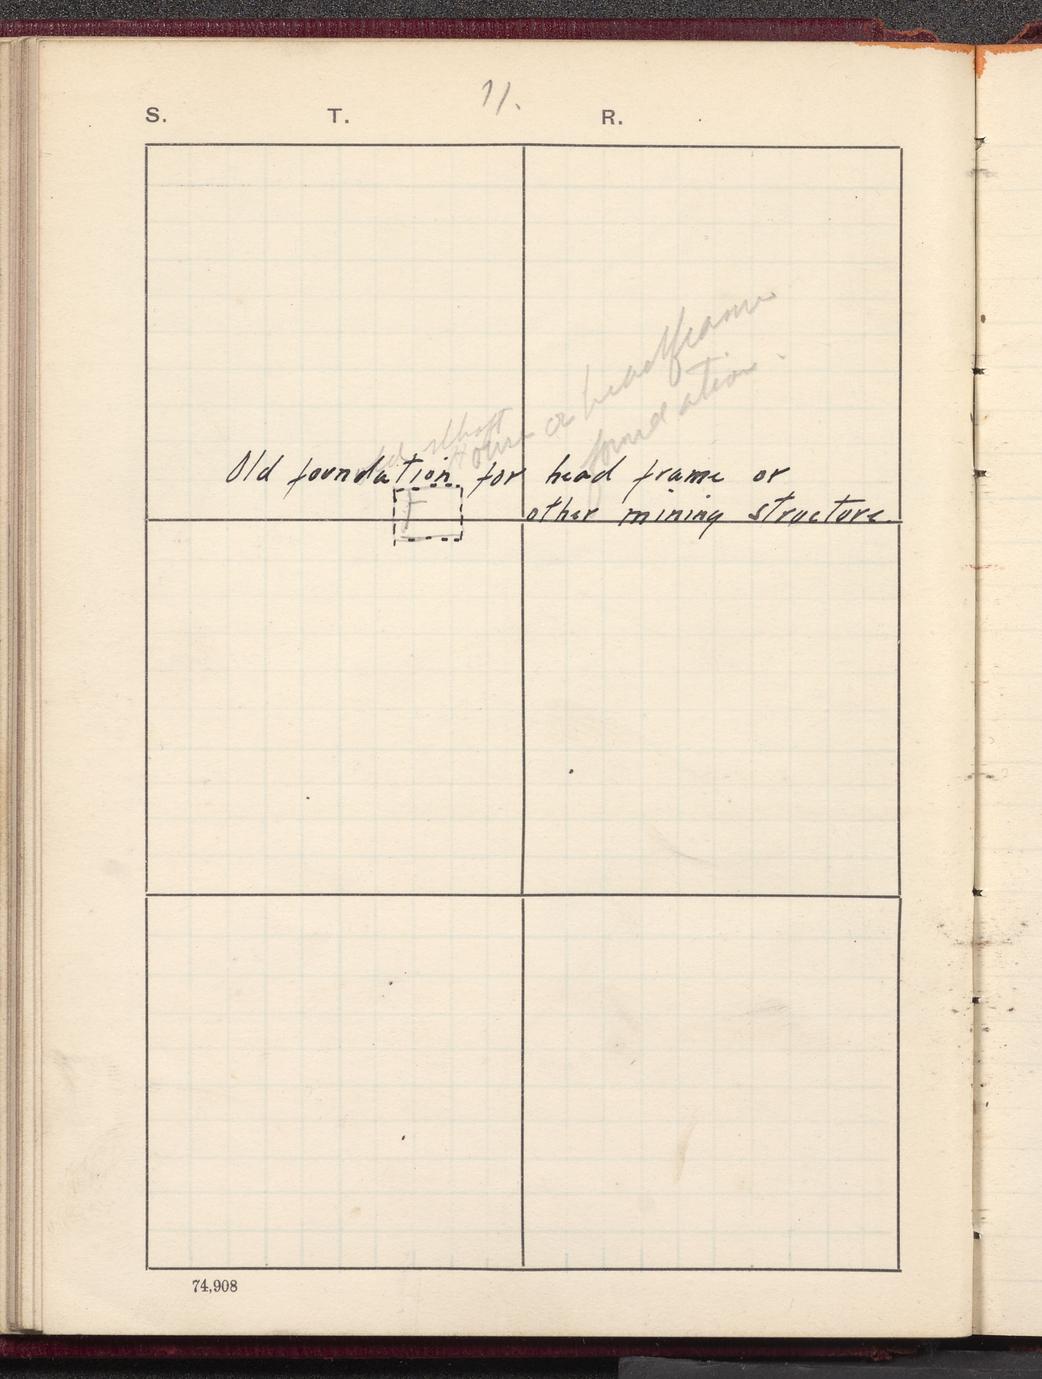 S. T. 71. R.
Old shaft
House or headframe
foundation.
Old foundation for head frame or
F
other mining structure.
74,908